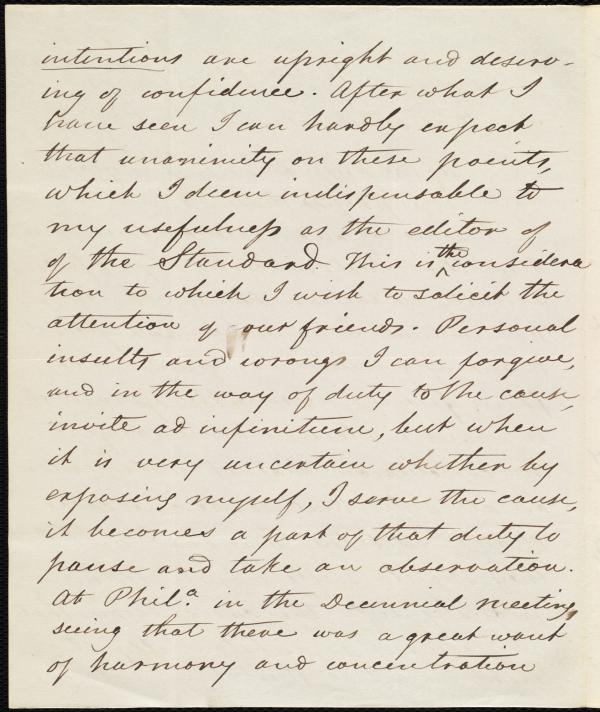 intentions are upright and deserv-
ing of confidence. After what I
have seen I can hardly expect
that unanimity on these points,
which I deem indispensable to
my usefulness as the editor of
of the Standard. This is the considera
tion to which I wish to solicit the
attention of our friends. Personal
insults and wrongs I can forgive,
and in the way of duty to the cause,
invite ad infinitum, but when
it is very uncertain whether by
exposing myself, I serve the cause,
it becomes a part of that duty to
pause and take an observation.
At Phila. in the Decennial meeting,
seeing that there was a great want
of harmony and concentration